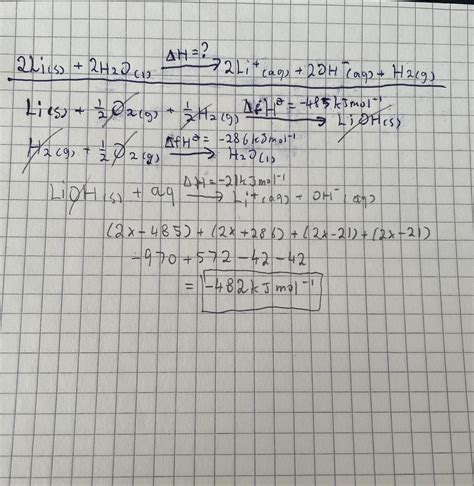 2Li(s) + 2H₂O(l) ΔH=? → 2Li⁺(aq) + 2OH⁻(aq) + H₂(g)
Li(s) + ½O₂(g) + ½H₂(g) ΔfH⦵ = -485kJmol⁻¹ → LiOH(s)
H₂(g) + ½O₂(g) ΔfH⦵ = -286kJmol⁻¹ → H₂O(l)
LiOH(s) + aq ΔH=-21kJmol⁻¹ → Li⁺(aq) + OH⁻(aq)
(2x-485) + (2x+286) + (2x-21) + (2x-21)
-970 + 572 - 42 - 42
= -482kJmol⁻¹